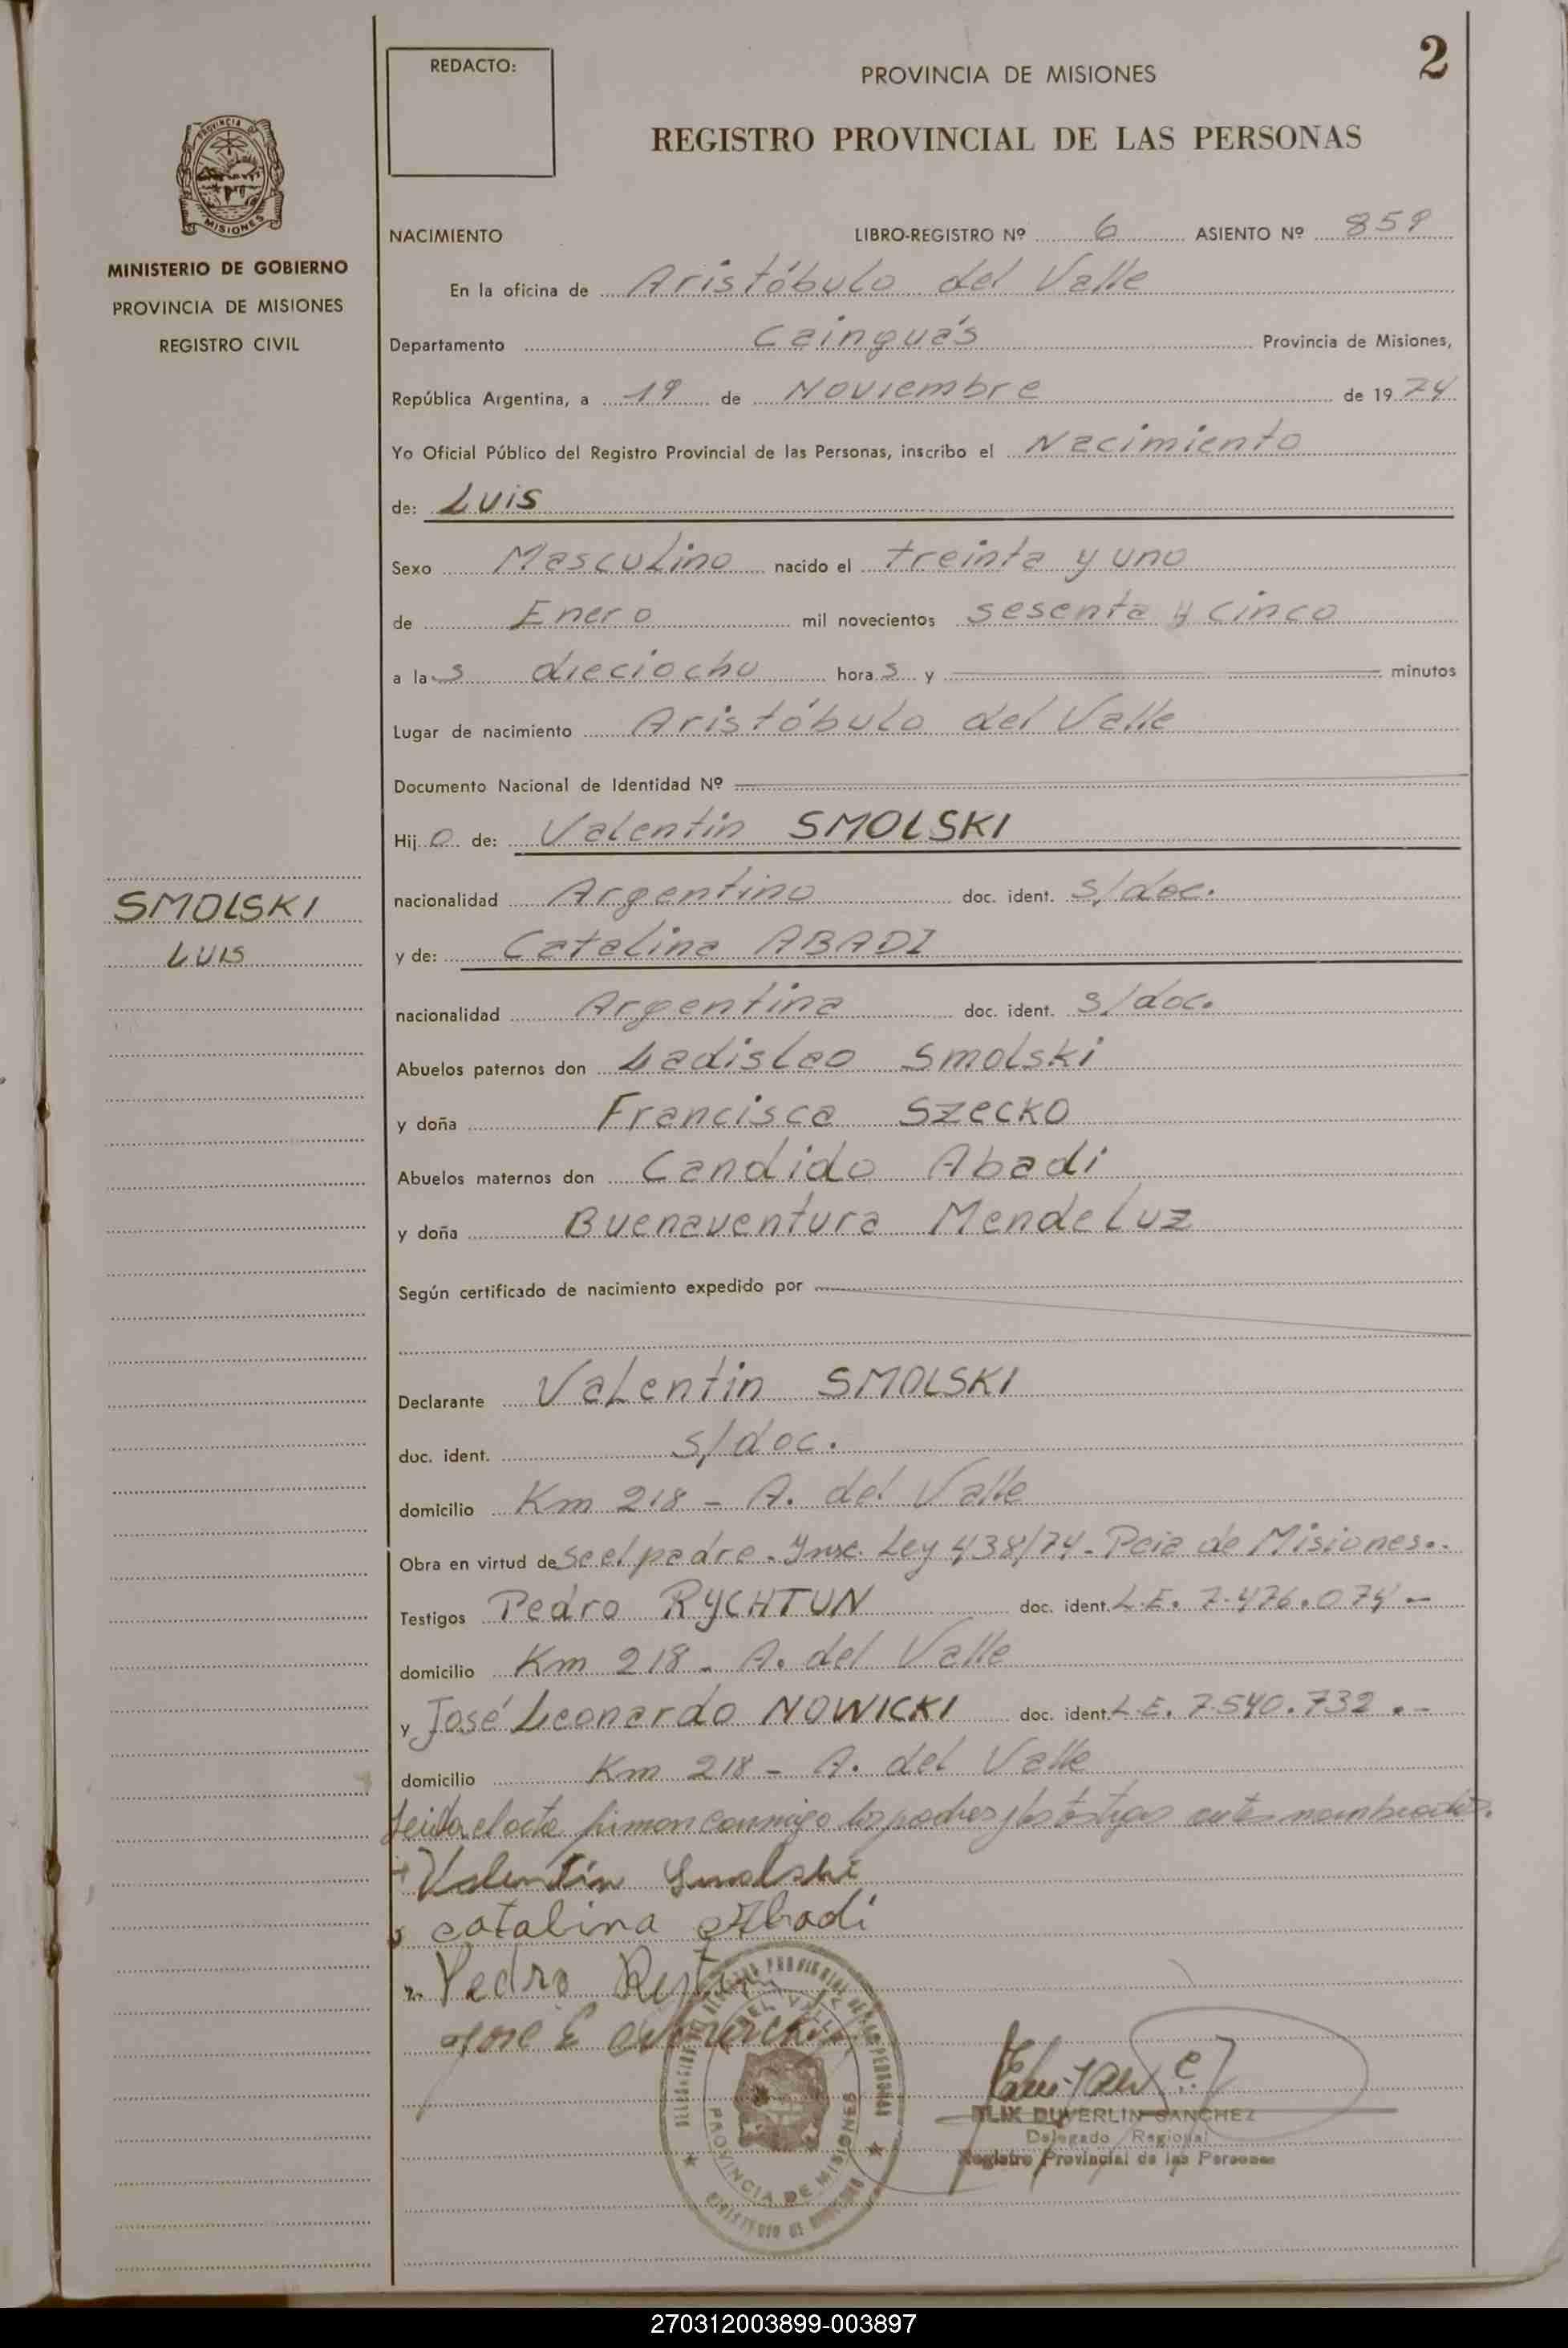 REDACTO:
2
PROVINCIA DE MISIONES
REGISTRO PROVINCIAL DE LAS PERSONAS
PROVINCIA DE
MISIONES
MINISTERIO DE GOBIERNO
PROVINCIA DE MISIONES
REGISTRO CIVIL
NACIMIENTO LIBRO-REGISTRO Nº 6 ASIENTO Nº 859
En la oficina de Aristóbulo del Valle
Departamento Cainguás Provincia de Misiones,
República Argentina, a 19 de Noviembre de 1974
Yo Oficial Público del Registro Provincial de las Personas, inscribo el Nacimiento
de: Luis
Sexo Masculino nacido el treinta y uno
de Enero mil novecientos sesenta y cinco
a las dieciocho horas y minutos
Lugar de nacimiento Aristóbulo del Valle
Documento Nacional de Identidad Nº
Hijo de: Valentin SMOLSKI
nacionalidad Argentino doc. ident. s/doc.
SMOLSKI
LUIS
y de: Catalina ABADI
nacionalidad Argentina doc. ident. s/doc.
Abuelos paternos don Ladislao Smolski
y doña Francisca Szecko
Abuelos maternos don Candido Abadi
y doña Buenaventura Mendeluz
Según certificado de nacimiento expedido por
Declarante Valentin SMOLSKI
doc. ident. s/doc.
domicilio Km 218 - A. del Valle
Obra en virtud de se el padre. Insc. Ley 438/74 - Pcia de Misiones.
Testigos Pedro RYCHTUN doc. ident. L.E. 7.476.074 -
domicilio Km 218 - A. del Valle
y José Leonardo NOWICKI doc. ident. L.E. 7.540.732 .-
domicilio Km 218 - A. del Valle
Leida el acta firman conmigo los padres y los testigos antes nombrados.
Valentin Smolski
Catalina Abadi
Pedro
José
PROVINCIA DE MISIONES
DUVERLIN SANCHEZ
Delegado Regional
Registro Provincial de las Personas
270312003899-003897